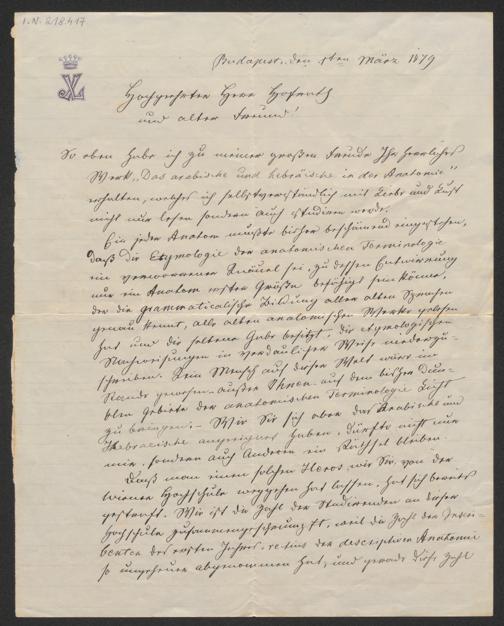 I.N. 218.417
Budapest, den 1ten März 1879
Hochgeehrter Herr Hofrath
und alter Freund!
So eben habe ich zu meiner großen Freude Ihr herrliches
Werk „Das arabische und hebräische in der Anatomie"
erhalten, welches ich selbstverständlich mit Liebe und Lust
nicht nur lesen sondern auch studiren werde.
Ein jeder Anatom mußte bisher beschämend eingestehen,
daß die Etymologie der anatomischen Terminologie
ein verworrener Knäuel sei, zu dessen Entwirrung
nur ein Anatom erster Größe befähigt sein könne,
der die grammaticalische Bildung aller alten Sprachen
genau kennt, alle alten anatomischen Werke gelesen
hat und die seltene Gabe besitzt, die etymologischen
Nachweisungen in verdaulicher Weise niederzu-
schreiben. Kein Mensch auf dieser Welt wäre im
Stande gewesen außer Ihnen auf dem bisher dun-
klen Gebiete der anatomischen Terminologie Licht
zu bringen. Wie Sie sich aber das Arabische und
Hebraeische angeeignet haben, dürfte nicht nur
mir, sondern auch Anderen ein Räthsel bleiben.
Daß man einen solchen Heros wie Sie, von der
Wiener Hochschule wegziehen hat lassen, hat sich bereits
gestraft. Wie ist die Zahl der Studirenden an dieser
Hochschule zusammengeschrumpft, weil die Zahl der
des ersten Jahres, der descriptiven Anatomie
so ungeheuer abgenommen hat, und gerade diese Zahl